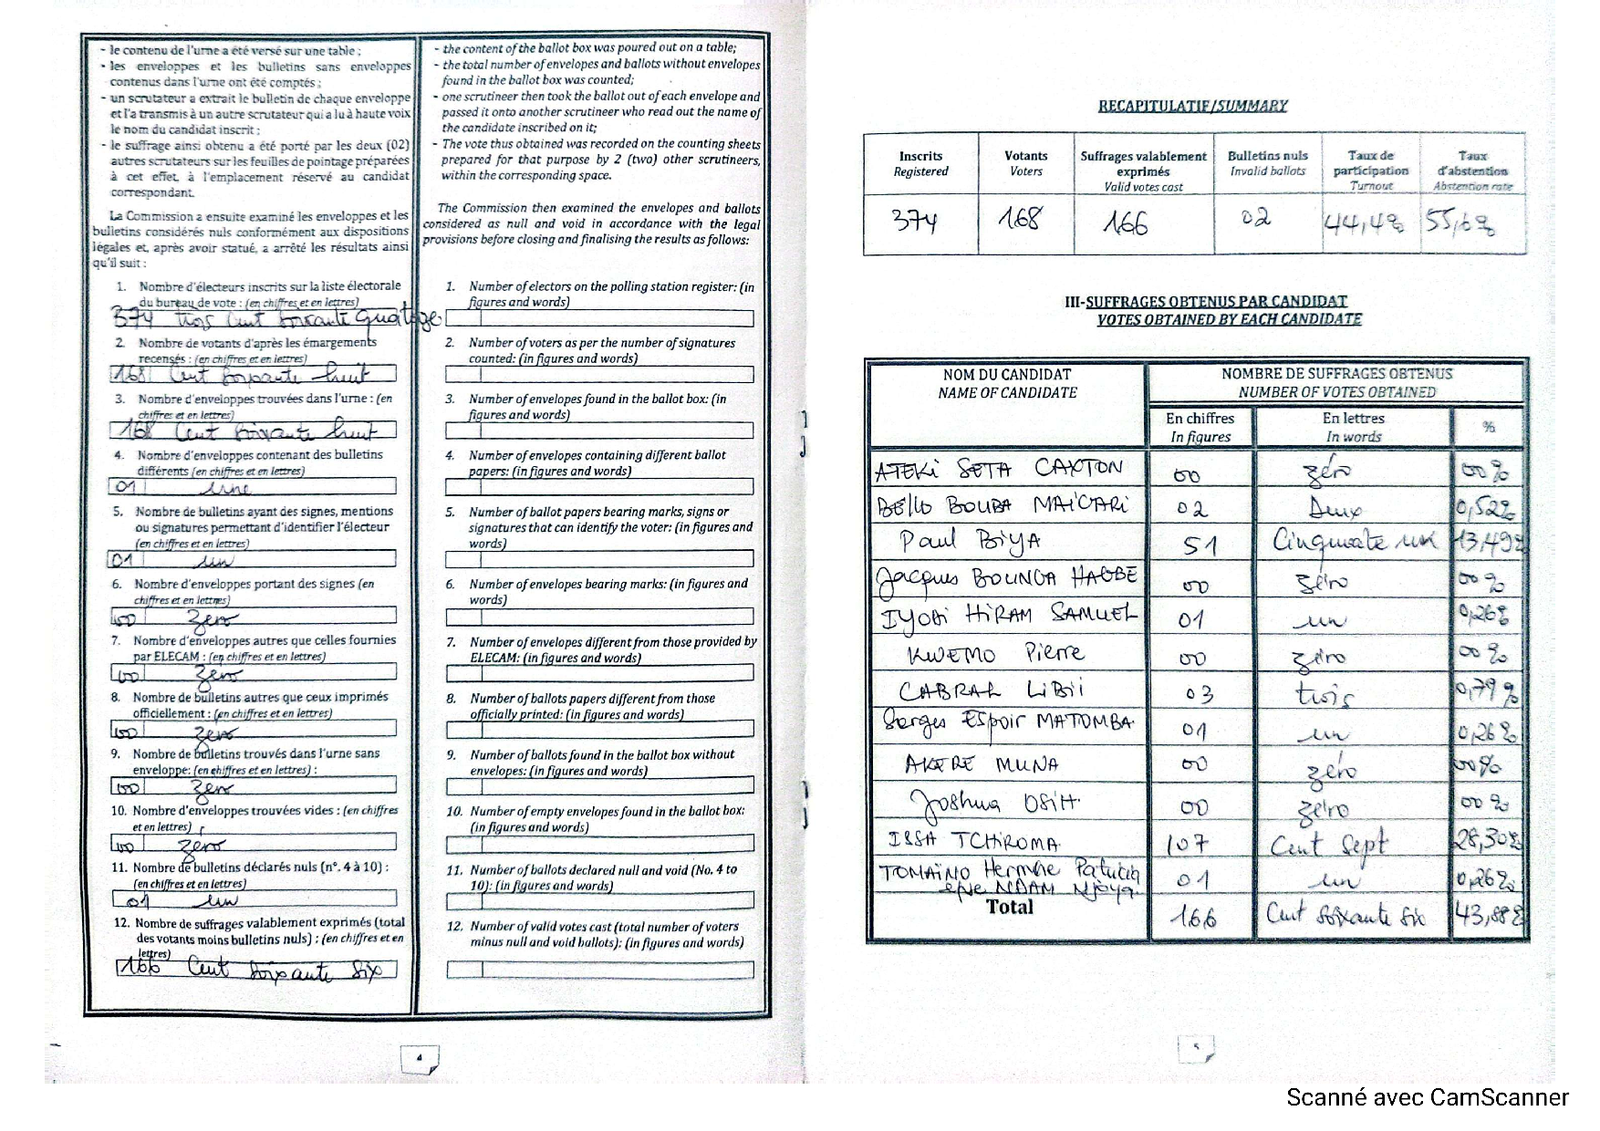 - le contenu de l'urne a été versé sur une table ;
- les enveloppes et les bulletins sans enveloppes
contenus dans l'urne ont été comptés ;
- un scrutateur a extrait le bulletin de chaque enveloppe
et l'a transmis à un autre scrutateur qui a lu à haute voix
le nom du candidat inscrit ;
- le suffrage ainsi obtenu a été porté par les deux (02)
autres scrutateurs sur les feuilles de pointage préparées
à cet effet, à l'emplacement réservé au candidat
correspondant.
La Commission a ensuite examiné les enveloppes et les
bulletins considérés nuls conformément aux dispositions
légales et, après avoir statué, a arrêté les résultats ainsi
qu'il suit :
1. Nombre d'électeurs inscrits sur la liste électorale
du bureau de vote : (en chiffres et en lettres)
374 trois Cent Soixante Quatorze
2. Nombre de votants d'après les émargements
recensés : (en chiffres et en lettres)
168 Cent Soixante huit
3. Nombre d'enveloppes trouvées dans l'urne : (en
chiffres et en lettres)
168 Cent Soixante huit
4. Nombre d'enveloppes contenant des bulletins
différents (en chiffres et en lettres)
01 une
5. Nombre de bulletins ayant des signes, mentions
ou signatures permettant d'identifier l'électeur
(en chiffres et en lettres)
01 un
6. Nombre d'enveloppes portant des signes (en
chiffres et en lettres)
00 Zero
7. Nombre d'enveloppes autres que celles fournies
par ELECAM : (en chiffres et en lettres)
00 Zero
8. Nombre de bulletins autres que ceux imprimés
officiellement : (en chiffres et en lettres)
00 Zero
9. Nombre de bulletins trouvés dans l'urne sans
enveloppe: (en chiffres et en lettres) :
00 Zero
10. Nombre d'enveloppes trouvées vides : (en chiffres
et en lettres)
00 Zero
11. Nombre de bulletins déclarés nuls (n°. 4 à 10) :
(en chiffres et en lettres)
01 un
12. Nombre de suffrages valablement exprimés (total
des votants moins bulletins nuls) : (en chiffres et en
lettres)
166 Cent Soixante Six
- the content of the ballot box was poured out on a table;
- the total number of envelopes and ballots without envelopes
found in the ballot box was counted;
- one scrutineer then took the ballot out of each envelope and
passed it onto another scrutineer who read out the name of
the candidate inscribed on it;
- The vote thus obtained was recorded on the counting sheets
prepared for that purpose by 2 (two) other scrutineers,
within the corresponding space.
The Commission then examined the envelopes and ballots
considered as null and void in accordance with the legal
provisions before closing and finalising the results as follows:
1. Number of electors on the polling station register: (in
figures and words)
2. Number of voters as per the number of signatures
counted: (in figures and words)
3. Number of envelopes found in the ballot box: (in
figures and words)
4. Number of envelopes containing different ballot
papers: (in figures and words)
5. Number of ballot papers bearing marks, signs or
signatures that can identify the voter: (in figures and
words)
6. Number of envelopes bearing marks: (in figures and
words)
7. Number of envelopes different from those provided by
ELECAM: (in figures and words)
8. Number of ballots papers different from those
officially printed: (in figures and words)
9. Number of ballots found in the ballot box without
envelopes: (in figures and words)
10. Number of empty envelopes found in the ballot box:
(in figures and words)
11. Number of ballots declared null and void (No. 4 to
10): (in figures and words)
12. Number of valid votes cast (total number of voters
minus null and void ballots): (in figures and words)
4
RECAPITULATIF/SUMMARY
Inscrits Votants Suffrages valablement Bulletins nuls Taux de Taux
Registered Voters exprimés Invalid ballots participation d'abstention
Valid votes cast Turnout Abstention rate
374 168 166 02 44,4% 55,6%
III-SUFFRAGES OBTENUS PAR CANDIDAT
VOTES OBTAINED BY EACH CANDIDATE
NOM DU CANDIDAT NOMBRE DE SUFFRAGES OBTENUS
NAME OF CANDIDATE NUMBER OF VOTES OBTAINED
En chiffres En lettres %
In figures In words
ATEKI SETA CAXTON 00 zéro 00%
BELLO BOUBA MAIGARI 02 Deux 0,52%
Paul BIYA 51 Cinquate un 13,49%
Jacques BOUNGA HAGBE 00 zéro 00%
IYODI HIRAM SAMUEL 01 un 0,26%
KWEMO Pierre 00 zéro 00%
CABRAL LIBII 03 trois 0,79%
Serges ESpoir MATOMBA 01 un 0,26%
AKERE MUNA 00 zéro 00%
Joshua OSIH 00 zéro 00%
ISSA TCHIROMA 107 Cent Sept 28,30%
TOMAÏNO Hermine Patricia
epse NDAM Njoya 01 un 0,26%
Total 166 Cent Soixante Six 43,88%
5
Scanné avec CamScanner